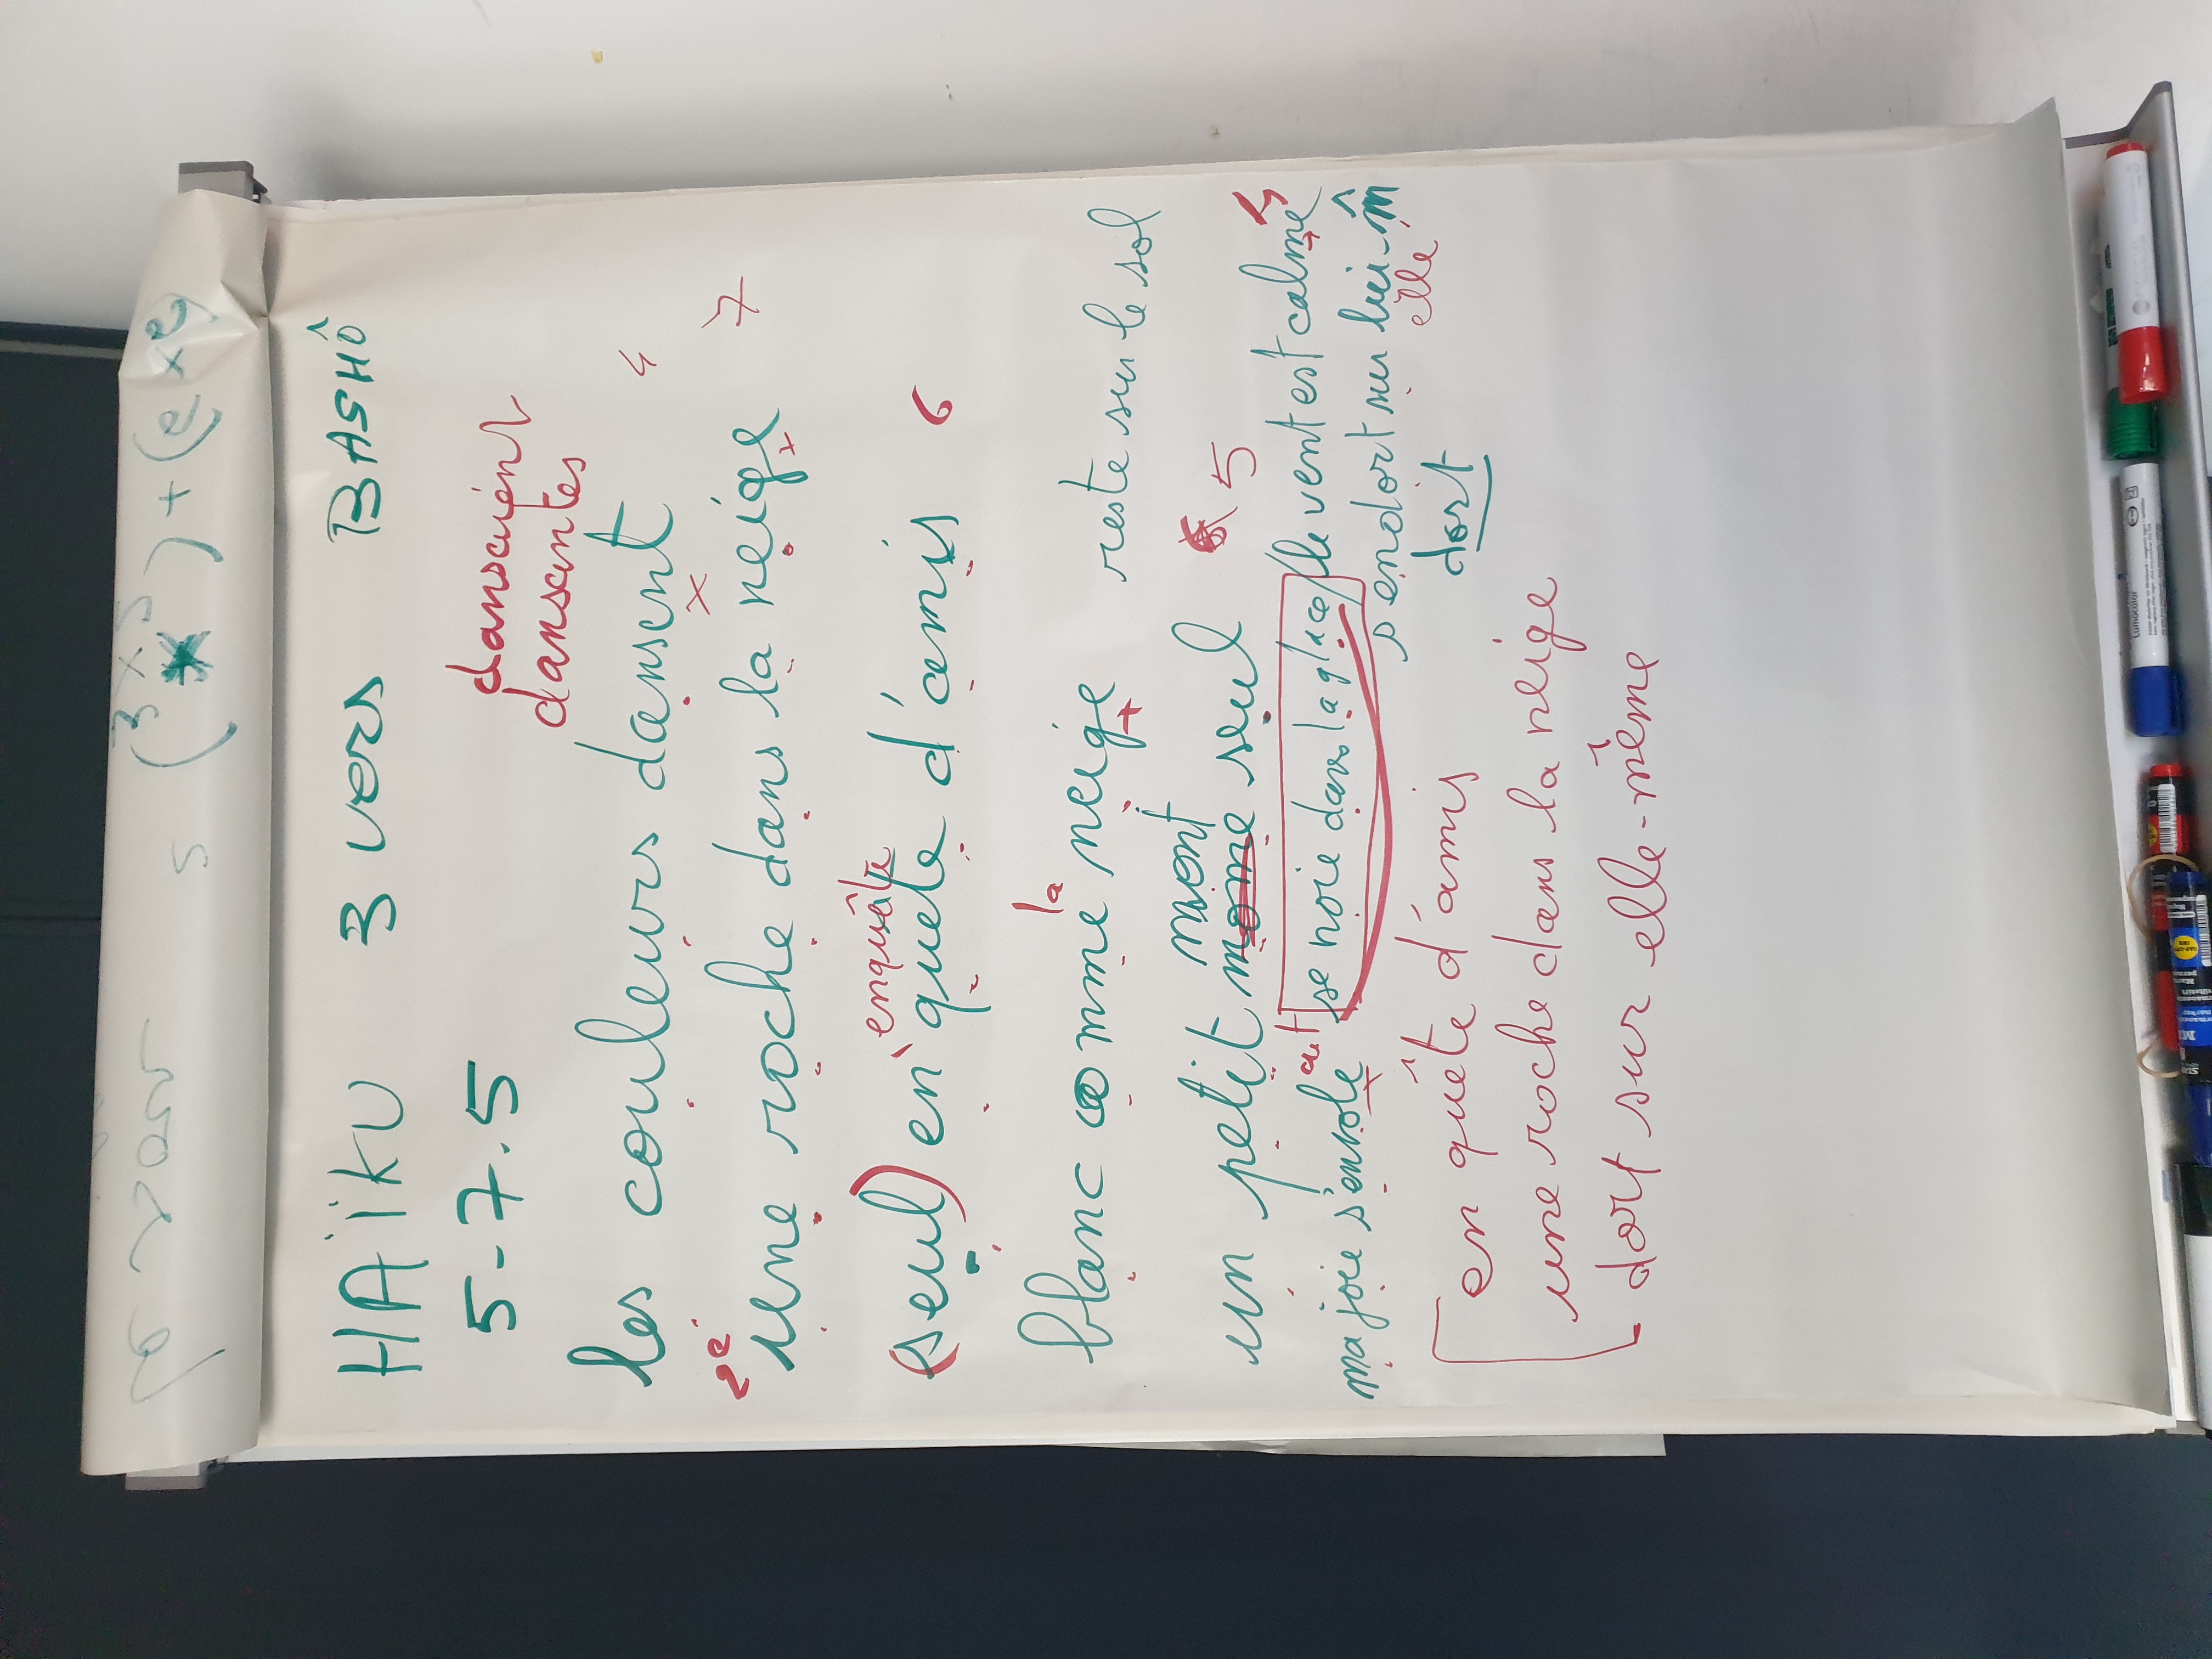 5 (3x5) + (2x2)
HAïKU 3 vers BASHÔ
5-7.5
dansaient
dansantes
les couleurs dansent 4
2e
une roche dans la neige 7
enquête
(seul) en quete d'amis 6
la
blanc comme neige reste sur le sol
mont
un petit mome seul 5
ma joie s'envole se noie dans la glace le vent est calme
s'endort sur lui-m̂
elle
dort
en quête d'amis
une roche dans la neige
dort sur elle-même
Lumocolor